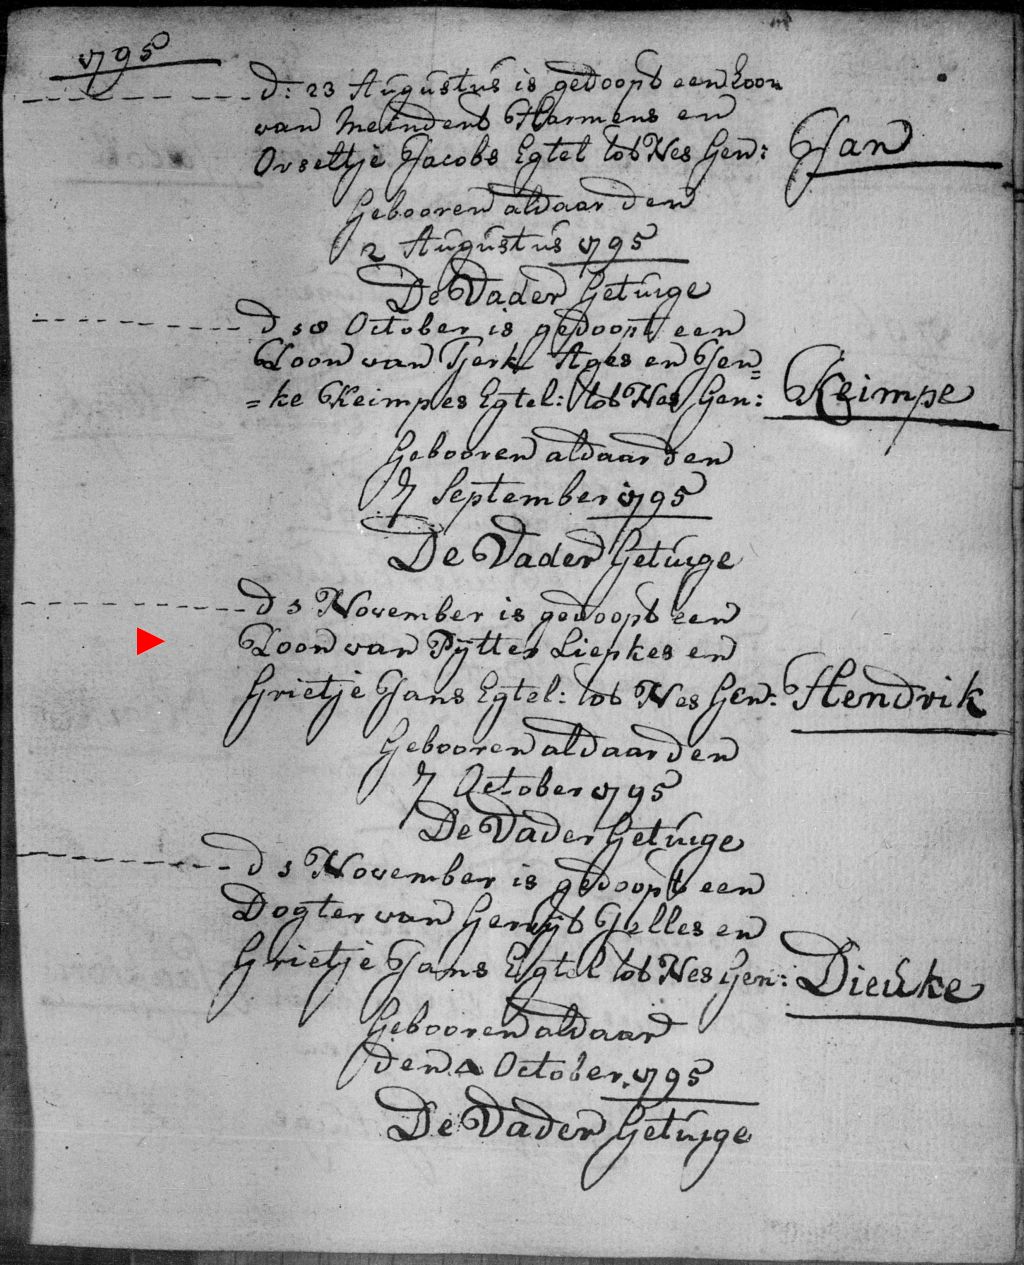 1795
d: 23 Augustus is gedoopt een Zoon
van Meindert Harmens en
Orseltje Jacobs Egtel tot Nes Gen: Jan
Gebooren aldaar den
2 Augustus 1795
De Vader Getuige
d 18 October is gedoopt een
Zoon van Tjerk Ages en Jen=
=ke Keimpes Egtel: tot Nes Gen: Keimpe
Gebooren aldaar den
7 September 1795
De Vader Getuige
d 1 November is gedoopt een
Zoon van Pÿtter Liepkes en
Grietje Jans Egtel: tot Nes Gen: Hendrik
Gebooren aldaar den
7 October 1795
De Vader Getuige
d 1 November is gedoopt een
Dogter van Gerrÿt Jelles en
Grietje Jans Egtel tot Nes Gen: Dieuke
Gebooren aldaar
den 4 October 1795
De Vader Getuige